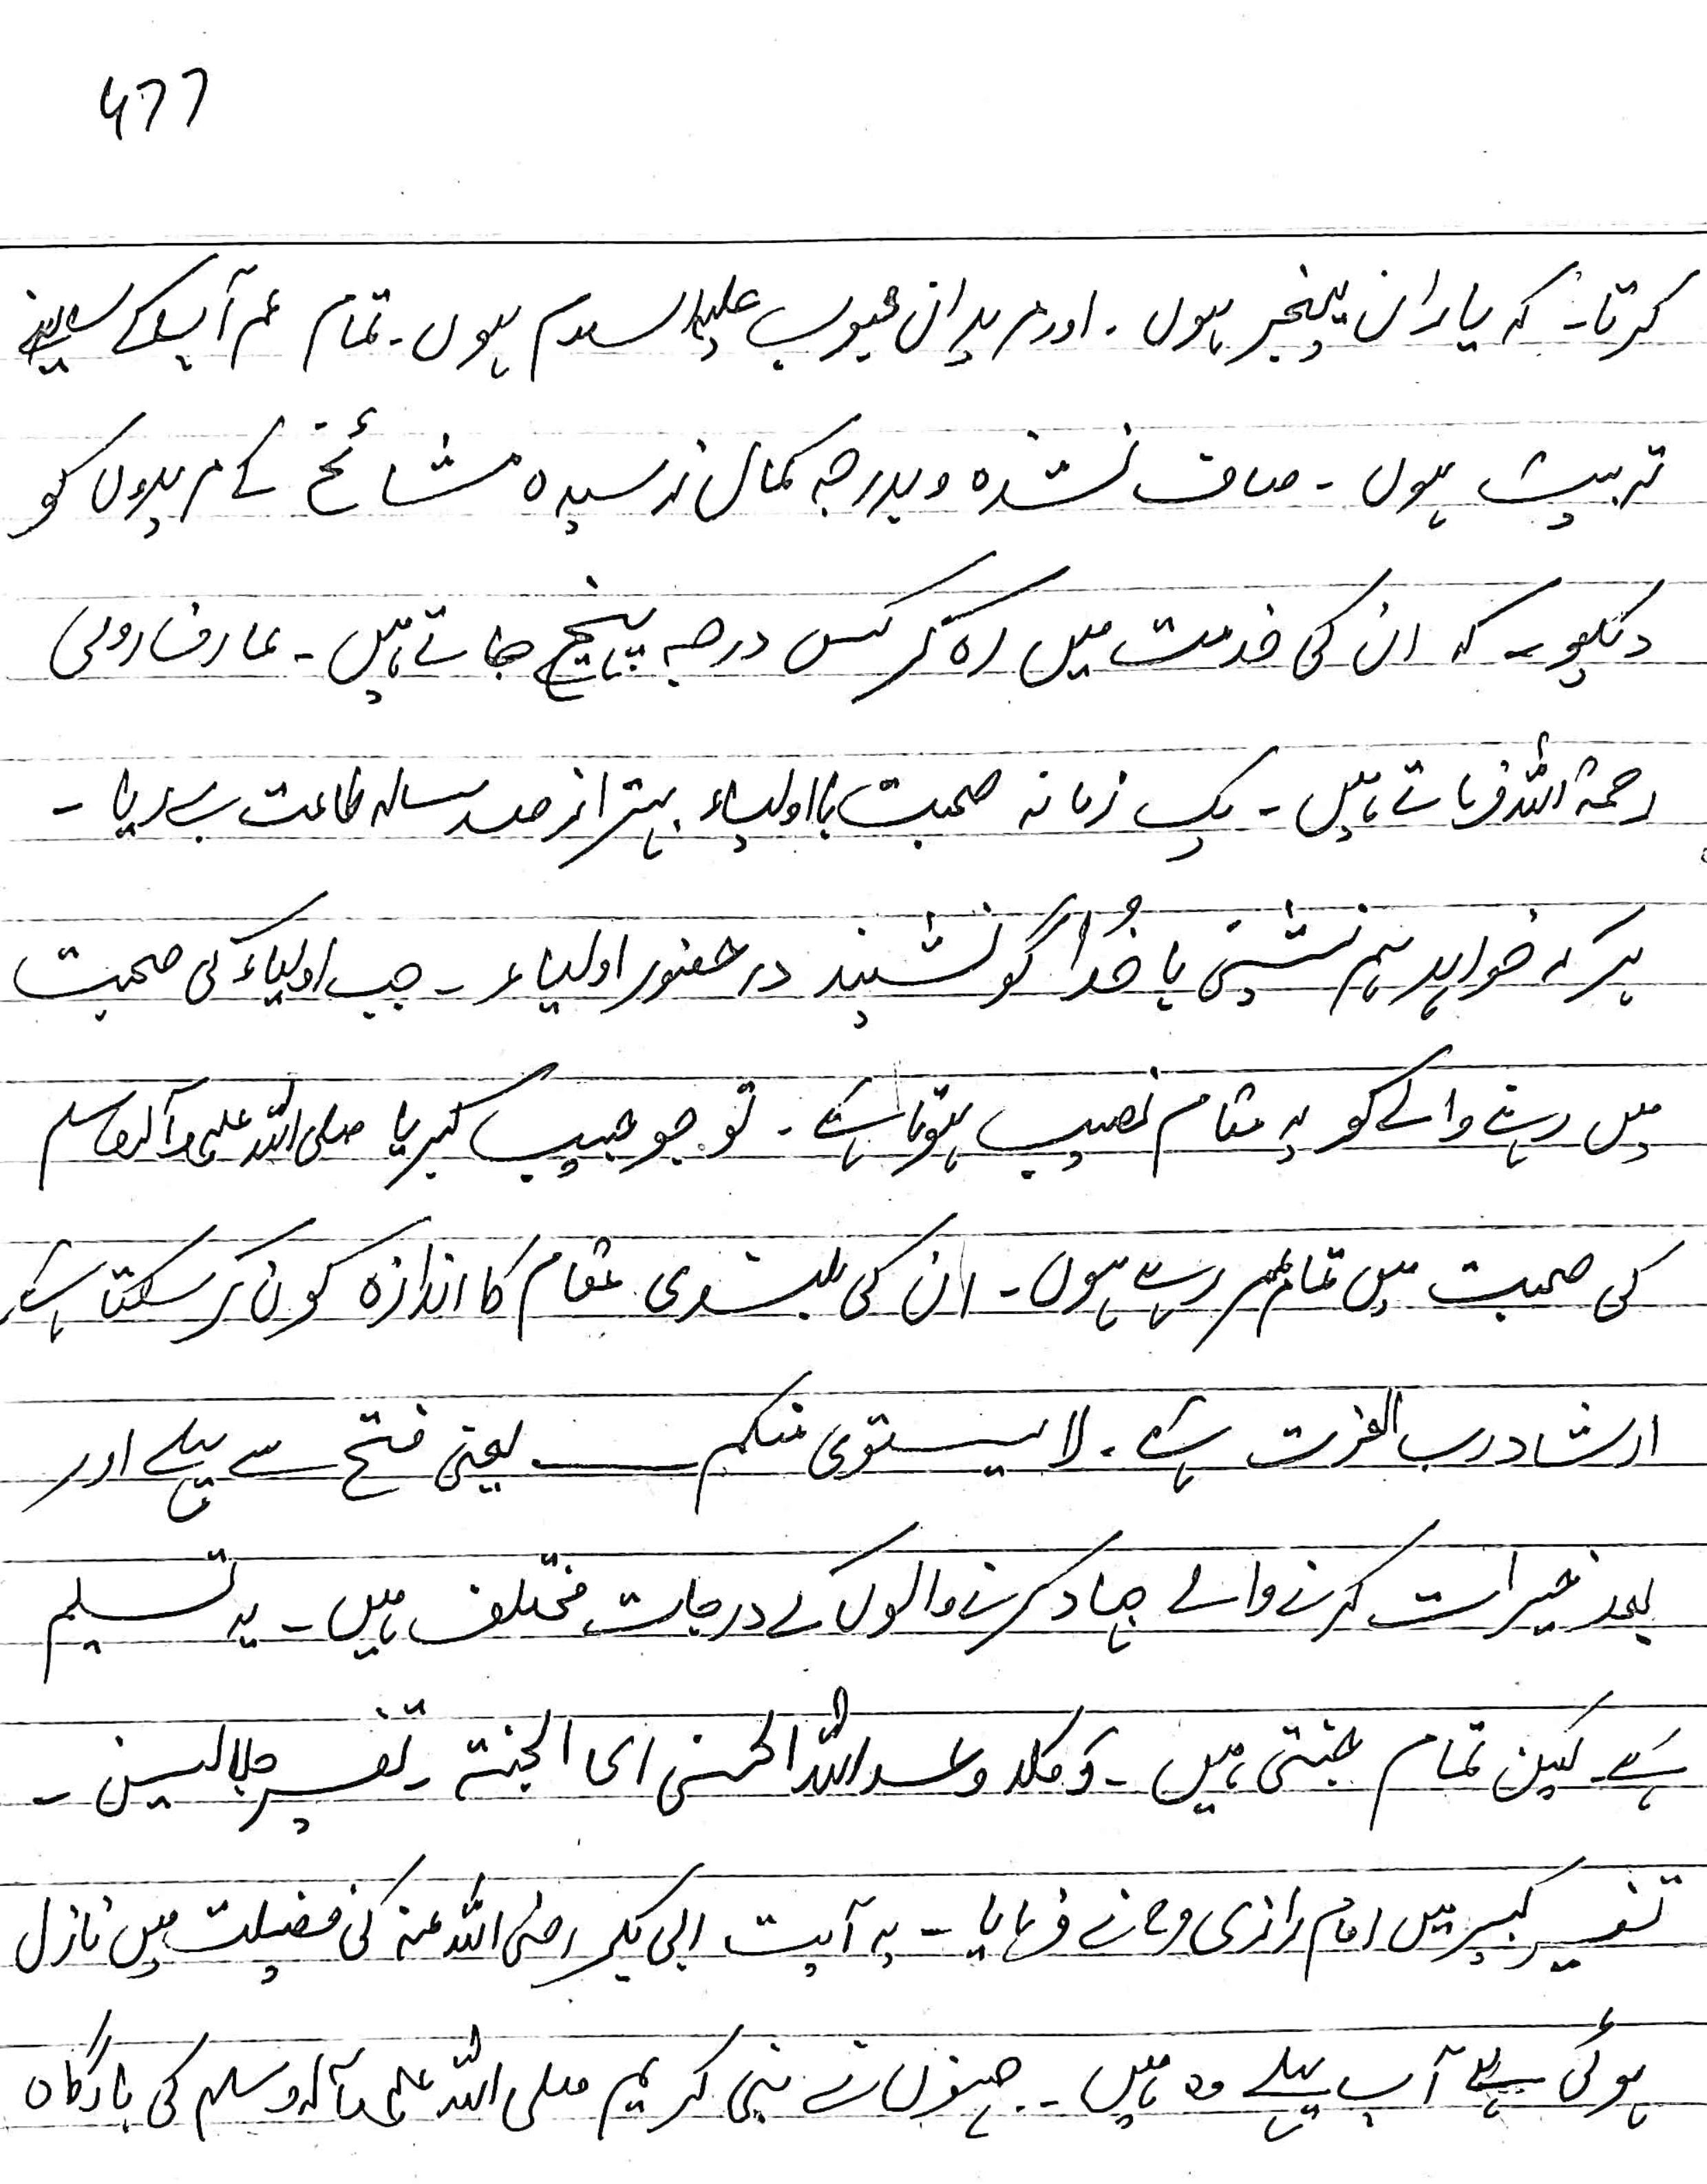 477
کرتا۔ کہ یاران پیغمبر ہوں۔ اور مریدان محبوب علیہ السلام ہوں۔ تمام عمر آپ کے
تربیت ہوں۔ صاف نشدہ و بدرجہ کمال نرسیدہ مشائخ کے مریدوں کو
دیکھو۔ کہ ان کی خدمت میں رہ کر کس درجہ پہنچ جاتے ہیں۔ عارف رومی
رحمۃ اللہ فرماتے ہیں۔ یک زمانہ صحبت بااولیاء بہتر از صد سالہ طاعت بے ریا۔
ہر کہ خواہد ہم نشینی با خُدا گو نشیند در حضور اولیاء۔ جب اولیاء کی صحبت
میں رہنے والے کو یہ مقام نصیب ہوتا ہے۔ تو جو حبیب کبریا صلی اللہ علیہ وآلہ وسلم
کی صحبت میں تمام عمر رہے ہوں۔ ان کی بلندی مقام کا اندازہ کون کر سکتا ہے
ارشاد رب العزت ہے۔ لا یستوی منکم ــــ یعنی فتح سے پہلے اور
بعد خیرات کرنے والے جہاد کرنے والوں کے درجات مختلف ہیں۔ یہ تسلیم
ہے۔ لیکن تمام جنتی ہیں۔ وَ کلا وعد اللہ الحسنی ای الجنتہ۔ تفسیر جلالین۔
تفسیر کبیر میں امام رازی رح نے فرمایا۔ یہ آیت ابی بکر رضی اللہ عنہ کی فضیلت میں نازل
ہوئی ہے آپ پہلے وہ ہیں۔ جنہوں نے نبی کریم صلی اللہ علیہ وآلہ وسلم کی بارگاہ